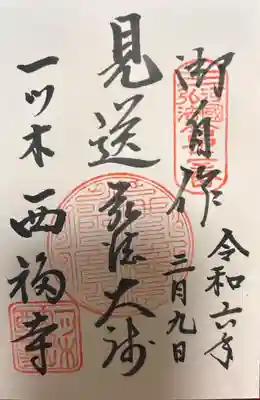 令和六年
三月九日
御自作
見送 弘法大師
一ツ木 西福寺